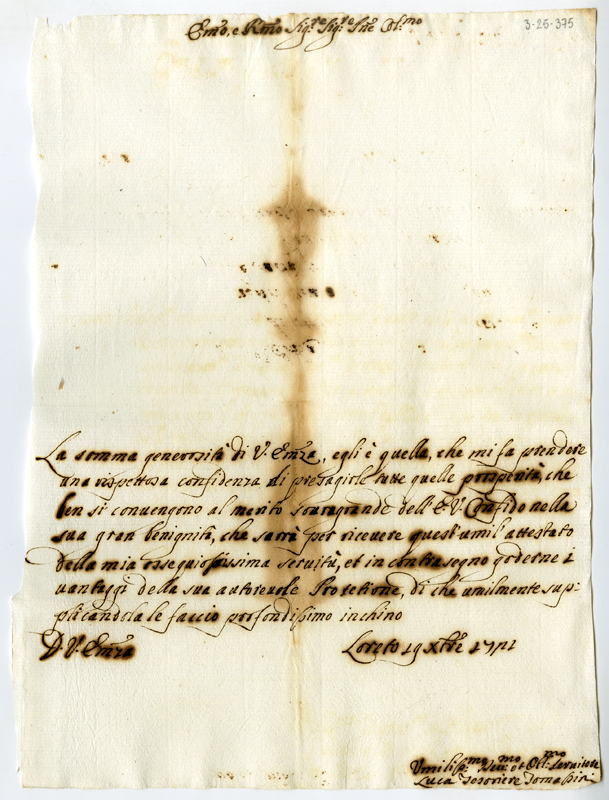 3-25-375
Em̃o, e R̃mo Sig.re Sig.re Pñe Col.mo
La somma generosità di V. Em̃za, egli è quella, che mi fa prendere
una rispettosa confidenza di presagirle tutte quelle prosperità, che
ben si convengono al merito souragrande dell'E.V. Confido nella
sua gran benignità, che sarà per riceuere quest'umil'attestato
della mia ossequiosissima seruitù, et in contrasegno goderne i
vantaggi della sua autoreuole Protetione, di che umilmente sup:
plicandola le faccio profondissimo inchino
D V. Em̃za
Loreto 19 Xbre
Umiliss.mo Deu.mo et Obl.mo Seruitore
Luca Tesoriere